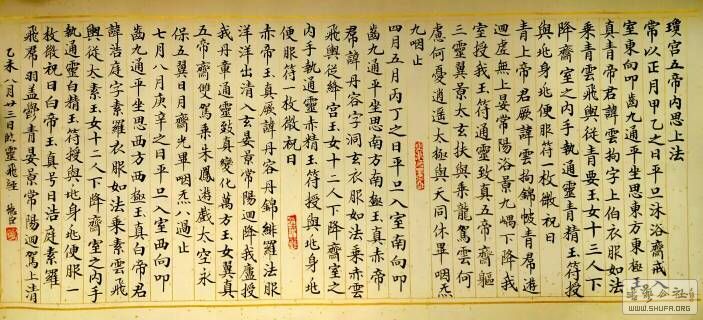 瓊宮五帝內思上法
常以正月甲乙之日平旦沐浴齋戒入
室東向叩齒九通平坐思東方東極玉
真青帝君諱雲拘字上伯衣服如法
乘青雲飛輿從青要玉女十二人下
降齋室之內手執通靈青精玉符授
與兆身兆便服符一枚微祝曰
青上帝君厥諱雲拘錦帔青帬遊
迴虛無上晏常陽洛景九嵎下降我
室授我玉符通靈致真五帝齊軀
三靈翼景太玄扶輿乘龍駕雲何
慮何憂逍遙太極與天同休畢咽炁
九咽止
四月五月丙丁之日平旦入室南向叩
齒九通平坐思南方南極玉真赤帝
君諱丹容字洞玄衣服如法乘赤雲
飛輿從絳宮玉女十二人下降齋室之
內手執通靈赤精玉符授與兆身兆
便服符一枚微祝曰
赤帝玉真厥諱丹容丹錦緋羅法服
洋洋出清入玄晏景常陽迴降我廬授
我丹章通靈致真變化萬方玉女翼真
五帝齊雙駕乘朱鳳遊戲太空永
保五翼日月齊光畢咽炁八過止
七月八月庚辛之日平旦入室西向叩
齒九通平坐思西方西極玉真白帝君
諱浩庭字素羅衣服如法乘素雲飛
輿從太素玉女十二人下降齋室之內手
執通靈白精玉符授與兆身兆便服一
枚微祝曰白帝玉真号曰浩庭素羅
飛帬羽蓋鬱青晏景常陽迴駕上清
乙未八月廿三日臨靈飛經
WWW.SHUFA.ORG